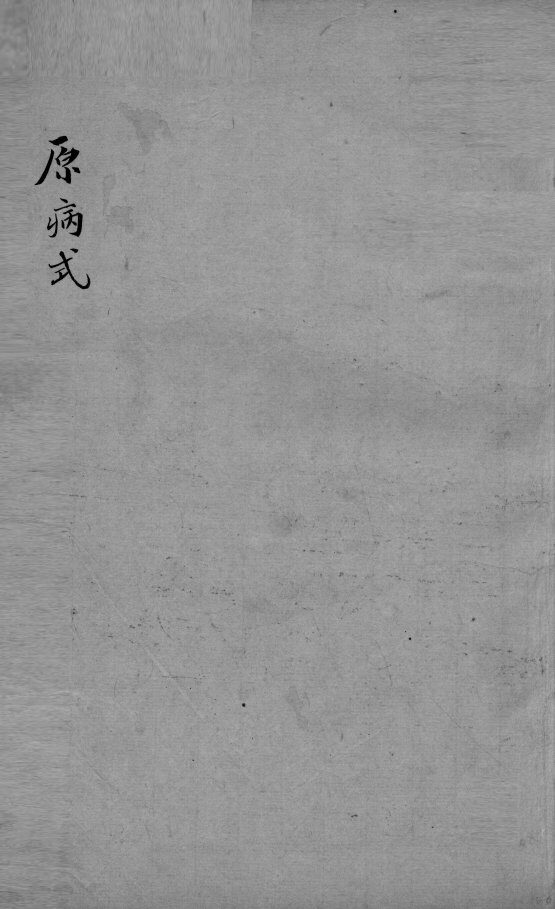 原病式